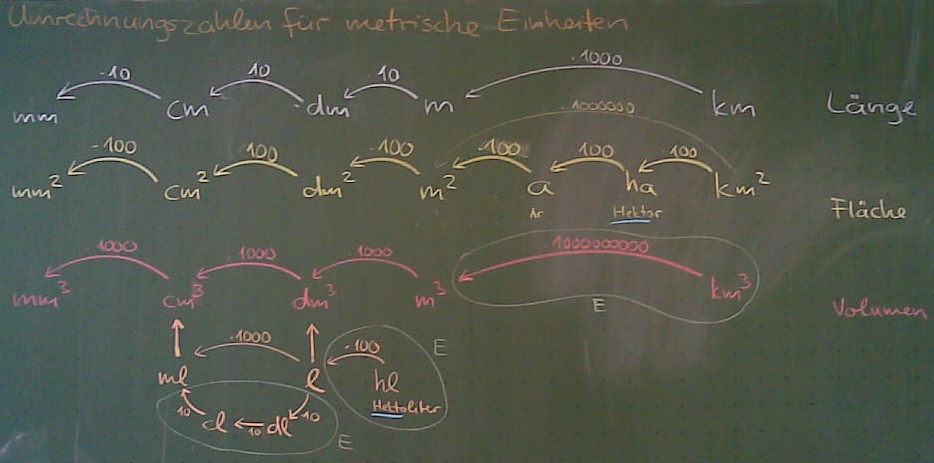 Umrechnungszahlen für metrische Einheiten
·10 ·10 ·10 ·1000
mm cm dm m km Länge
·1000000
·100 ·100 ·100 ·100 ·100 ·100
mm² cm² dm² m² a ha km²
Ar Hektar Fläche
·1000 ·1000 ·1000 ·1000000000
mm³ cm³ dm³ m³ km³
E Volumen
·1000 ·100 E
ml l hl
Hektoliter
10 cl 10 dl 10 E